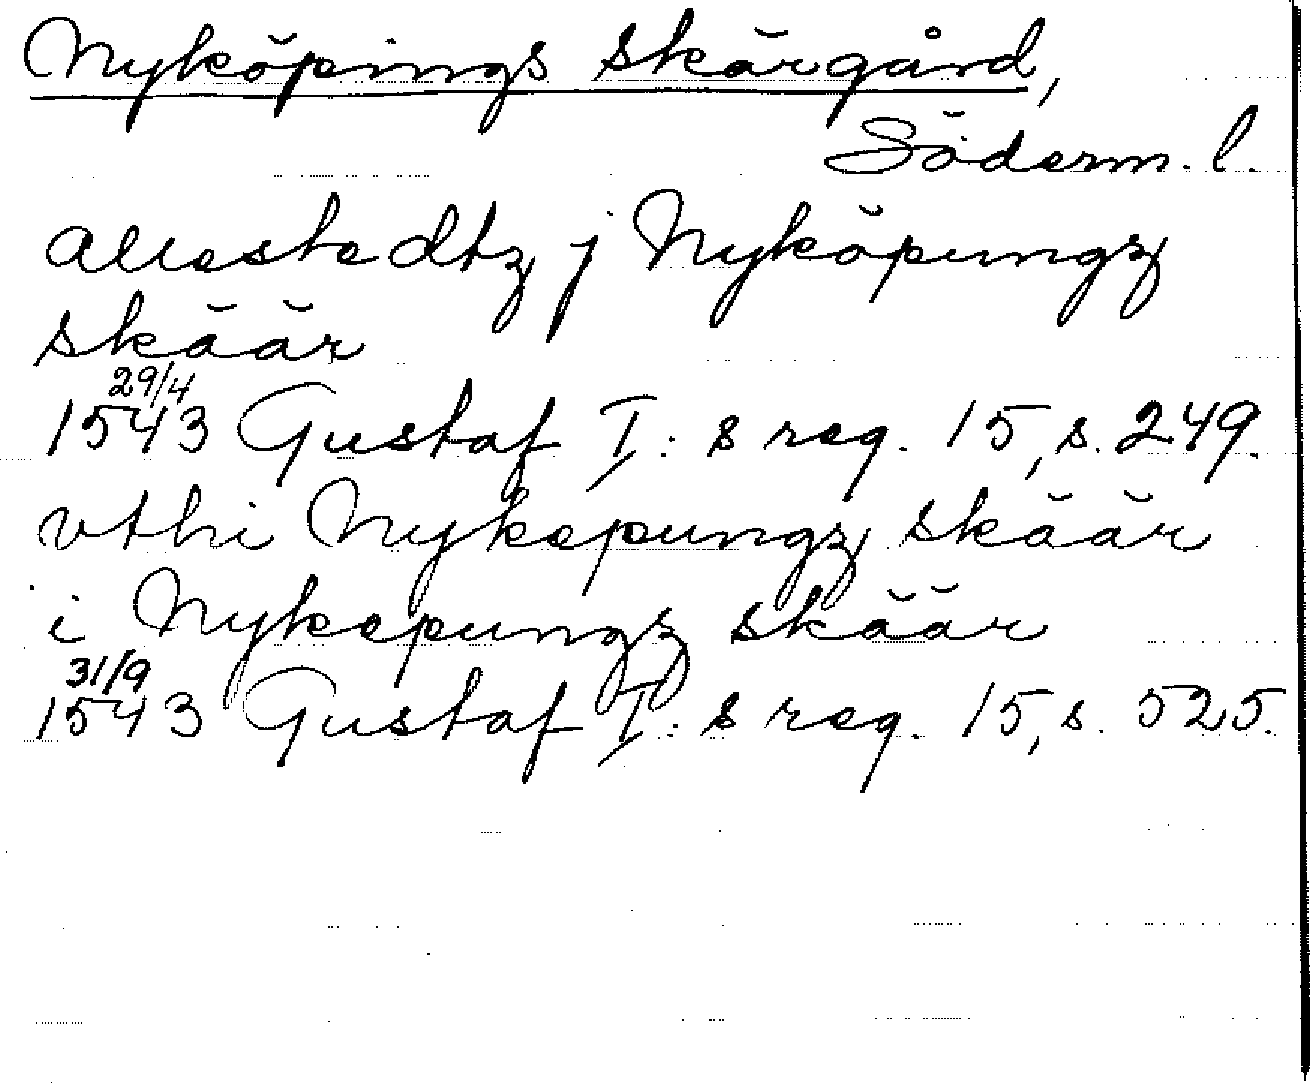 Nyköpings skärgård,
Söderm. l.
allestedtz j Nyköpungz
skäär
29/4
1543 Gustaf I:s reg. 15, s. 249.
vthi Nykepungz skäär
i Nykepungz skäär
31/9
1543 Gustaf I:s reg. 15, s. 525.